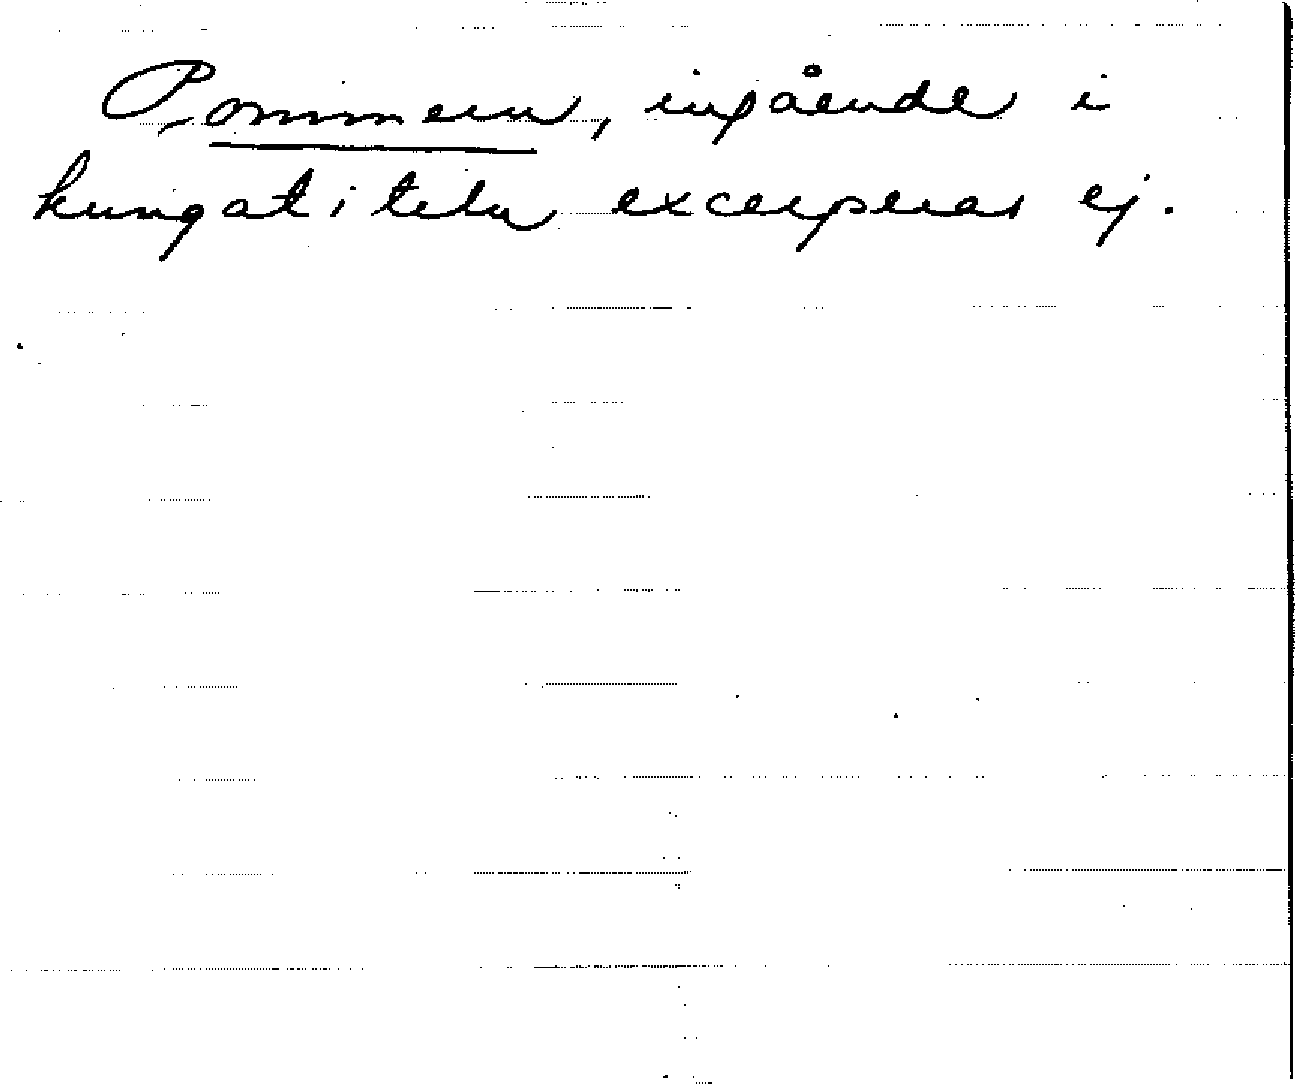 Pommern, ingående i
kungatiteln excerperas ej.